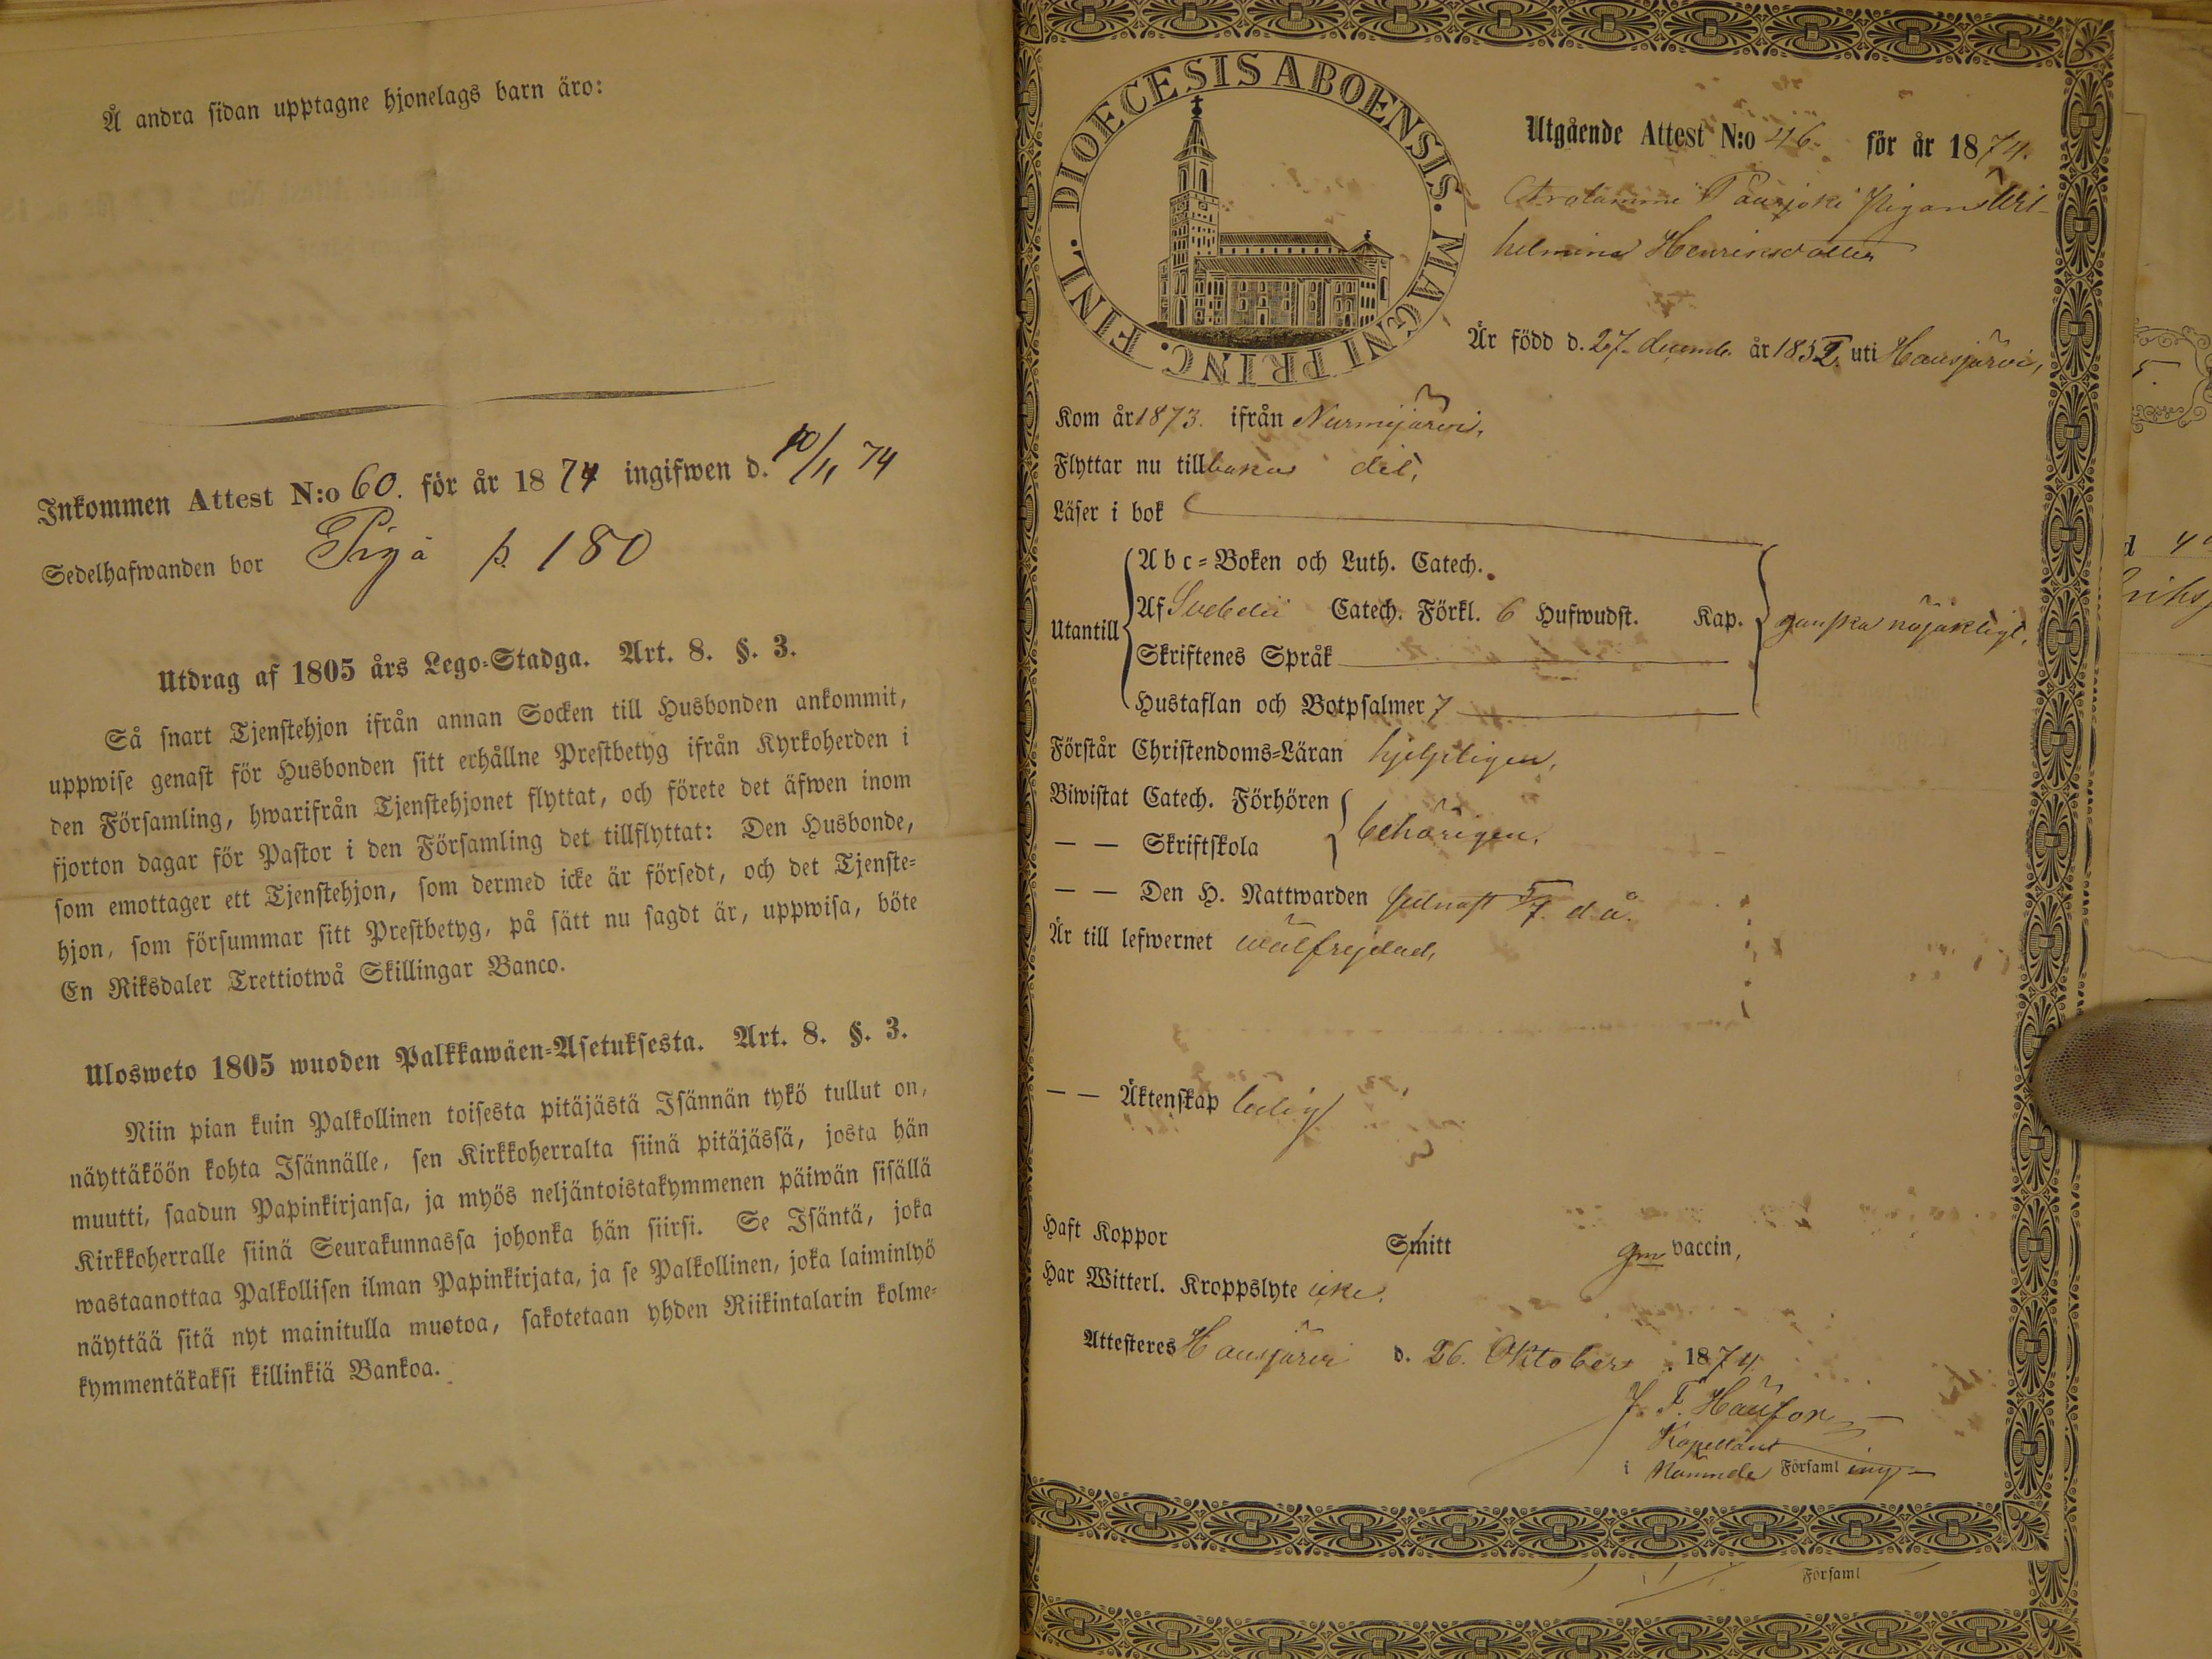 Å andra sidan upptagne hjonelags barn äro:
Inkommen Attest N:o 60. för år 1874 ingifwen d. 10/11 74
Sedelhafwanden bor Piga p. 180
Utdrag af 1805 års Lego-Stadga. Art. 8. §. 3.
Så snart Tjenstehjon ifrån annan Socken till Husbonden ankommit,
uppwise genast för Husbonden sitt erhållne Prestbetyg ifrån Kyrkoherden i
den Församling, hwarifrån Tjenstehjonet flyttat, och förete det äfwen inom
fjorton dagar för Pastor i den Församling det tillflyttat: Den Husbonde,
som emottager ett Tjenstehjon, som dermed icke är försedt, och det Tjenste-
hjon, som försummar sitt Prestbetyg, på sätt nu sagdt är, uppwisa, böte
En Riksdaler Trettiotwå Skillingar Banco.
Ulosweto 1805 wuoden Palkkawäen-Asetuksesta. Art. 8. §. 3.
Niin pian kuin Palkollinen toisesta pitäjästä Isännän tykö tullut on,
näyttäköön kohta Isännälle, sen Kirkkoherralta siinä pitäjässä, josta hän
muutti, saadun Papinkirjansa, ja myös neljäntoistakymmenen päiwän sisällä
Kirkkoherralle siinä Seurakunnassa johonka hän siirsi. Se Isäntä, joka
wastaanottaa Palkollisen ilman Papinkirjata, ja se Palkollinen, joka laiminlyö
näyttää sitä nyt mainitulla muotoa, sakotetaan yhden Riikintalarin kolme-
kymmentäkaksi killinkiä Bankoa.
DIOECESIS ABOENSIS. MAGNI PRINC. FINL.
Utgående Attest N:o 46. för år 1874.
Pigan Wil-
helmina Henriksdotter
Är född d. 27. decemb. år 1852. uti Hausjärvi,
Kom år 1873. ifrån Nurmijärvi,
Flyttar nu tillbaka dit,
Läser i bok
Utantill
Abc-Boken och Luth. Catech.
Af Svebelii Catech. Förkl. 6 Hufwudst. Kap.
ganska nöjaktigt.
Skriftenes Språk
Hustaflan och Botpsalmer 7
Förstår Christendoms-Läran hjelpligen,
Biwistat Catech. Förhören
behörigen.
— — Skriftskola
— — Den H. Nattwarden sednast 5/7 d. å.
Är till lefwernet wälfrejdad,
— — Äktenskap ledig
Haft Koppor Smitt gm vaccin,
Har Witterl. Kroppslyte icke.
Attesteres Hausjärvi d. 26. Oktober 1874.
J. F. Häufors
Kapellant
i nämnde Församling
Församl